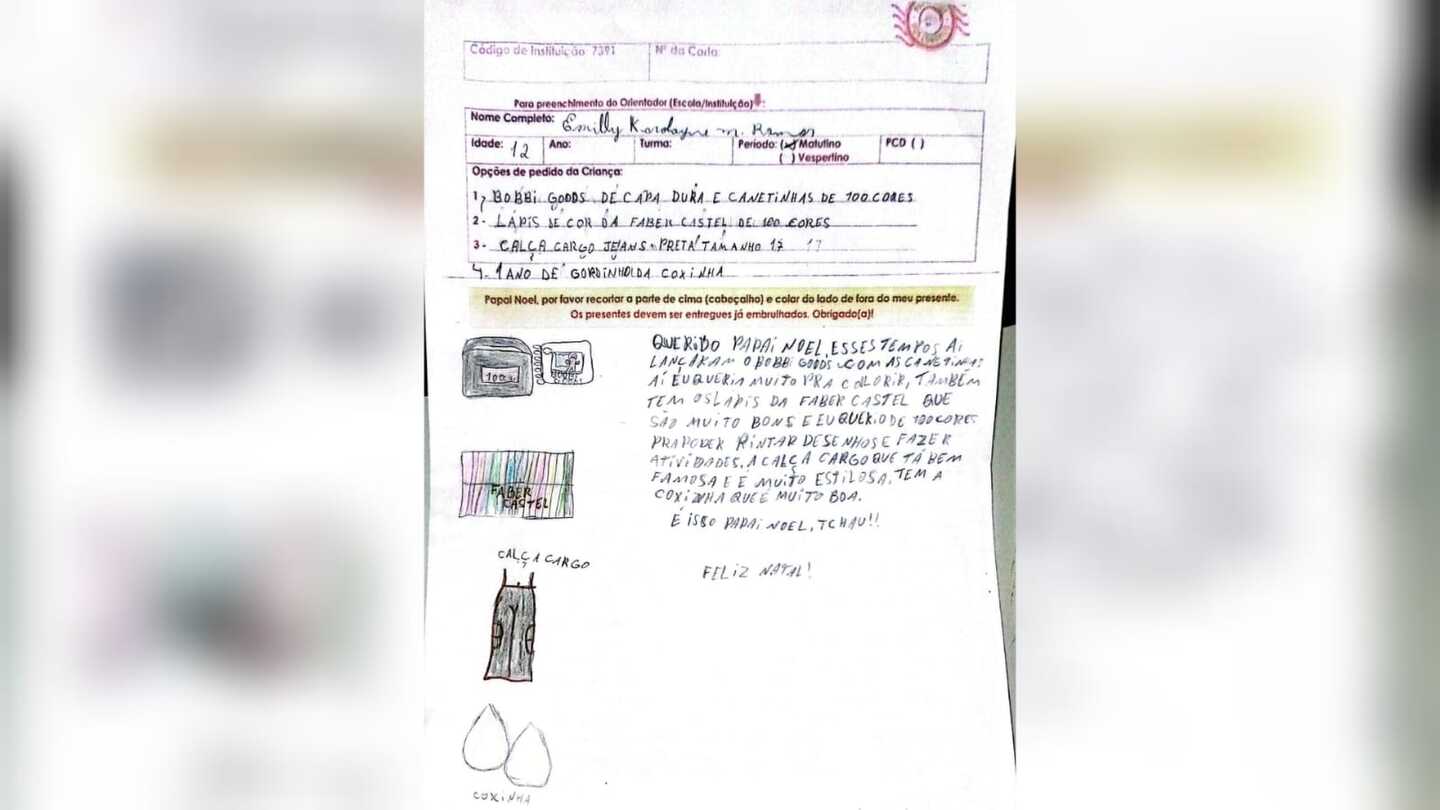 Código de Instituição: 7391
Nº da Carta:
Para preenchimento do Orientador (Escola/Instituição):
Nome Completo: Emilly Karolayne M. Ramos
Idade: 12 Ano: Turma: Período: (x) Matutino PCD ( )
( ) Vespertino
Opções de pedido da Criança:
1- BOBBI GOODS DE CAPA DURA E CANETINHAS DE 100 CORES
2- LÁPIS DE COR DA FABER CASTEL DE 100 CORES
3- CALÇA CARGO JEANS PRETA TAMANHO 12
4- 1 ANO DE GORDINHO DA COXINHA
Papai Noel, por favor recortar a parte de cima (cabeçalho) e colar do lado de fora do meu presente.
Os presentes devem ser entregues já embrulhados. Obrigado(a)!
QUERIDO PAPAI NOEL, ESSES TEMPOS AI
LANÇARAM O BOBBI GOODS COM AS CANETINHAS
AÍ EU QUERIA MUITO PRA COLORIR, TAMBÉM
TEM OS LAPIS DA FABER CASTEL QUE
SÃO MUITO BONS E EU QUERIO DE 100 CORES
PRA PODER PINTAR DESENHOS E FAZER
ATIVIDADES, A CALÇA CARGO QUE TÁ BEM
FAMOSA E É MUITO ESTILOSA, TEM A
COXINHA QUE É MUITO BOA.
É ISSO PAPAI NOEL, TCHAU!!
FELIZ NATAL!
100
BOBBI GOODS
FABER
CASTEL
CALÇA CARGO
COXINHA